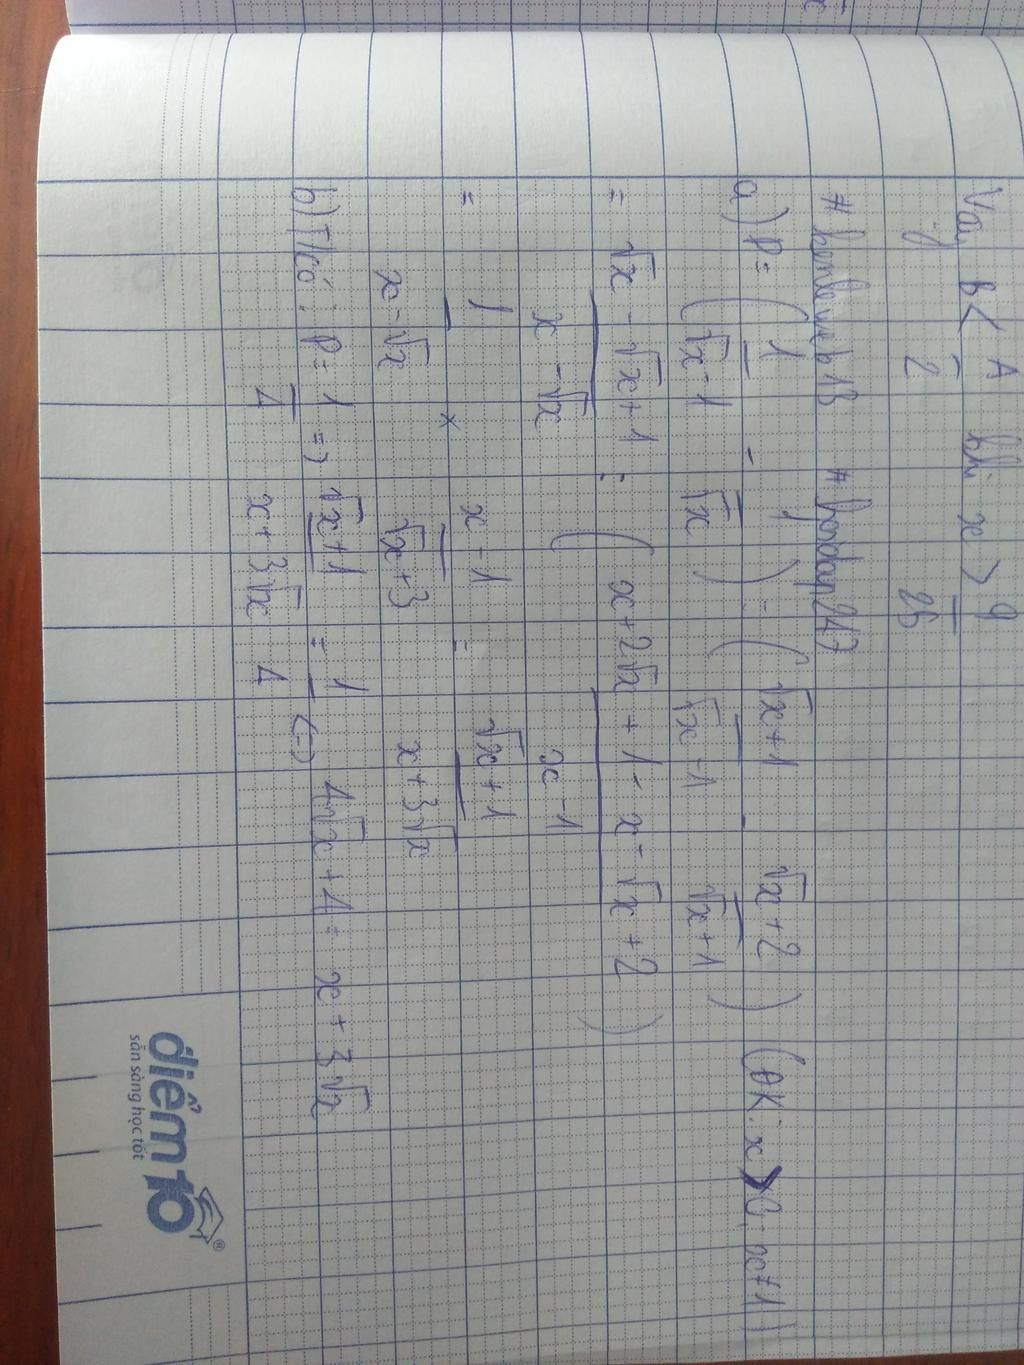 Vậy B < A/2 khi x > 9/25
# kenlevip18 # hoidap247
a) P = ( 1/(√x-1) - 1/√x ) : ( (√x+1)/(√x-1) - (√x+2)/(√x+1) ) (ĐK: x > 0, x ≠ 1)
= (√x - √x + 1)/(x - √x) : ( (x + 2√x + 1 - x - √x + 2)/(x - 1) )
= 1/(x - √x) × (x - 1)/(√x + 3) = (√x + 1)/(x + 3√x)
b) T/có: P = 1/4 => (√x + 1)/(x + 3√x) = 1/4 (=) 4√x + 4 = x + 3√x
điểm 10 ®
sẵn sàng học tốt